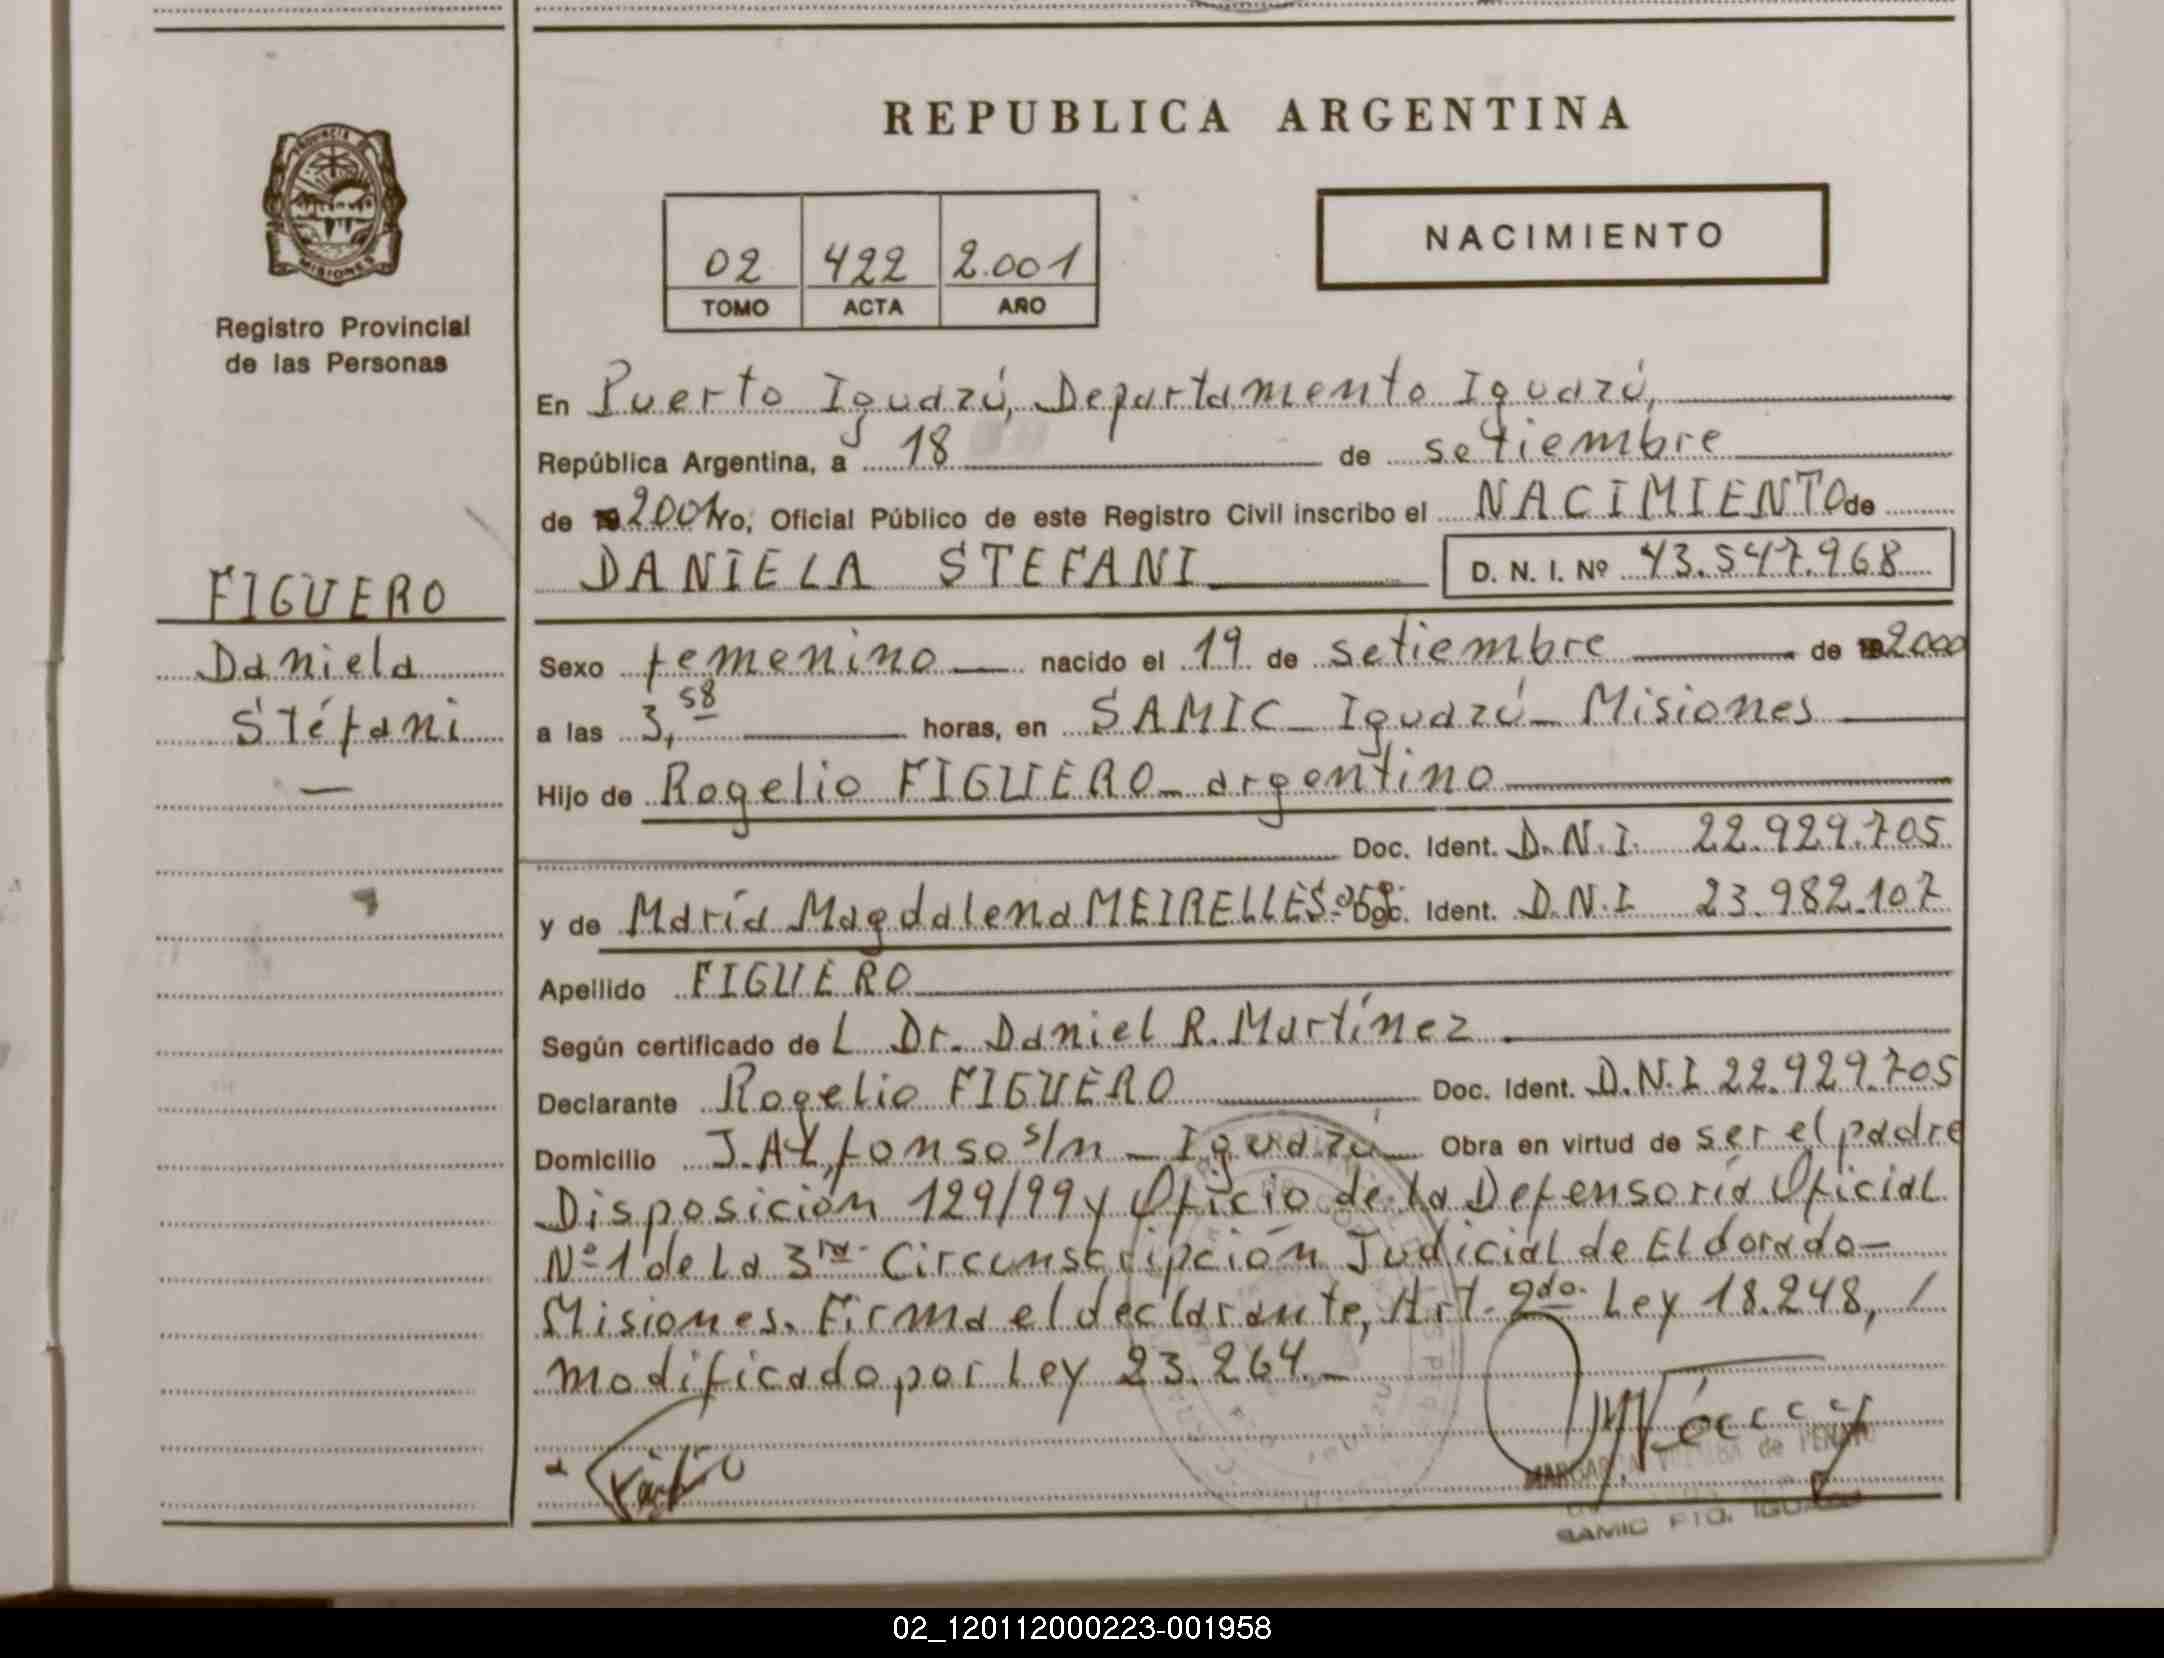 REPUBLICA ARGENTINA
PROVINCIA DE
MISIONES
Registro Provincial
de las Personas
02 422 2.001
TOMO ACTA AÑO
NACIMIENTO
En Puerto Iguazú, Departamento Iguazú,
República Argentina, a 18 de setiembre
de 2001 Yo, Oficial Público de este Registro Civil inscribo el NACIMIENTO de
DANIELA STEFANI D. N. I. Nº 43.547.968
FIGUERO
Daniela
Stéfani
Sexo femenino nacido el 19 de setiembre de 2000
a las 3,58 horas, en SAMIC - Iguazú - Misiones
Hijo de Rogelio FIGUERO - argentino
Doc. Ident. D.N.I. 22.929.705
y de María Magdalena MEIRELLES Doc. Ident. D.N.I 23.982.107
Apellido FIGUERO
Según certificado de L Dr. Daniel R. Martínez
Declarante Rogelio FIGUERO Doc. Ident. D.N.I 22.929.705
Domicilio J. Alfonso s/n - Iguazú Obra en virtud de ser el padre
Disposición 129/99 y Oficio de la Defensoría Oficial
Nº 1 de la 3ra. Circunscripción Judicial de Eldorado -
Misiones. Firma el declarante, Art. 2do. Ley 18.248, /
modificado por Ley 23.264.-
SAMIC PTO. IGUAZU
02_120112000223-001958